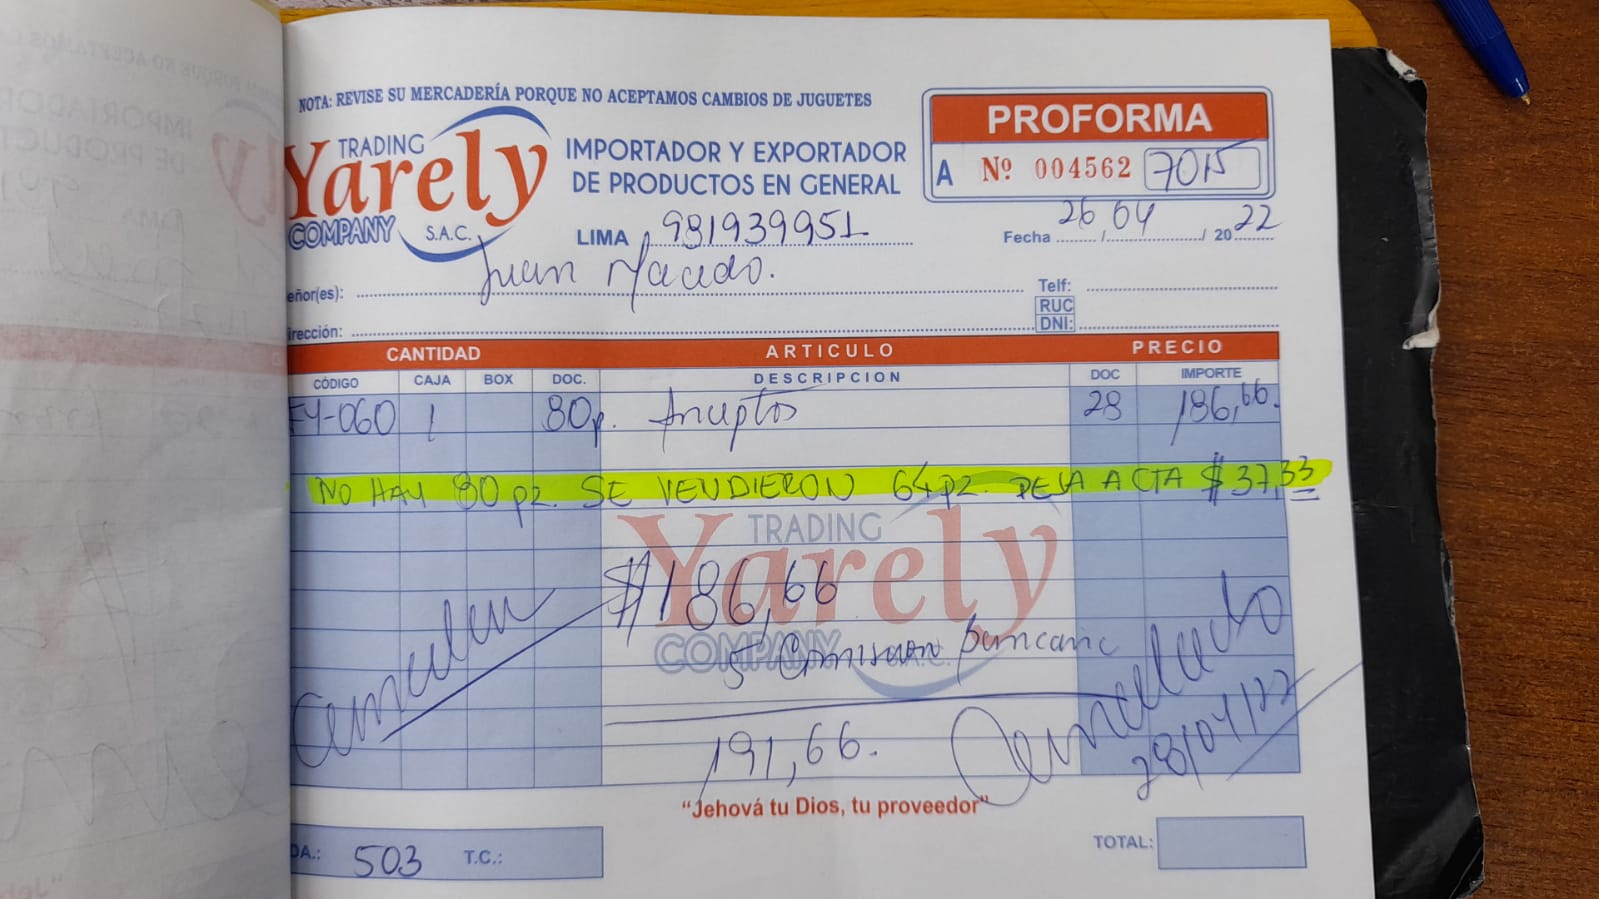 NOTA: REVISE SU MERCADERÍA PORQUE NO ACEPTAMOS CAMBIOS DE JUGUETES
TRADING
Yarely
COMPANY S.A.C.
IMPORTADOR Y EXPORTADOR
DE PRODUCTOS EN GENERAL
LIMA 981939951
PROFORMA
A Nº 004562 7015
Fecha 26/04/2022
eñor(es): Juan Macedo.
Telf:
RUC
DNI:
irección:
CANTIDAD ARTICULO PRECIO
CÓDIGO CAJA BOX DOC. DESCRIPCION DOC IMPORTE
FY-060 1 80p. 28 186,66.
NO HAY 80 pz. SE VENDIERON 64 pz. A CTA $ 37,33
TRADING
Yarely
COMPANY S.A.C.
$ 186,66
5 Comision bancaria
191,66.
Cancelado
28/04/22
"Jehová tu Dios, tu proveedor"
DA.: 503 T.C.:
TOTAL: